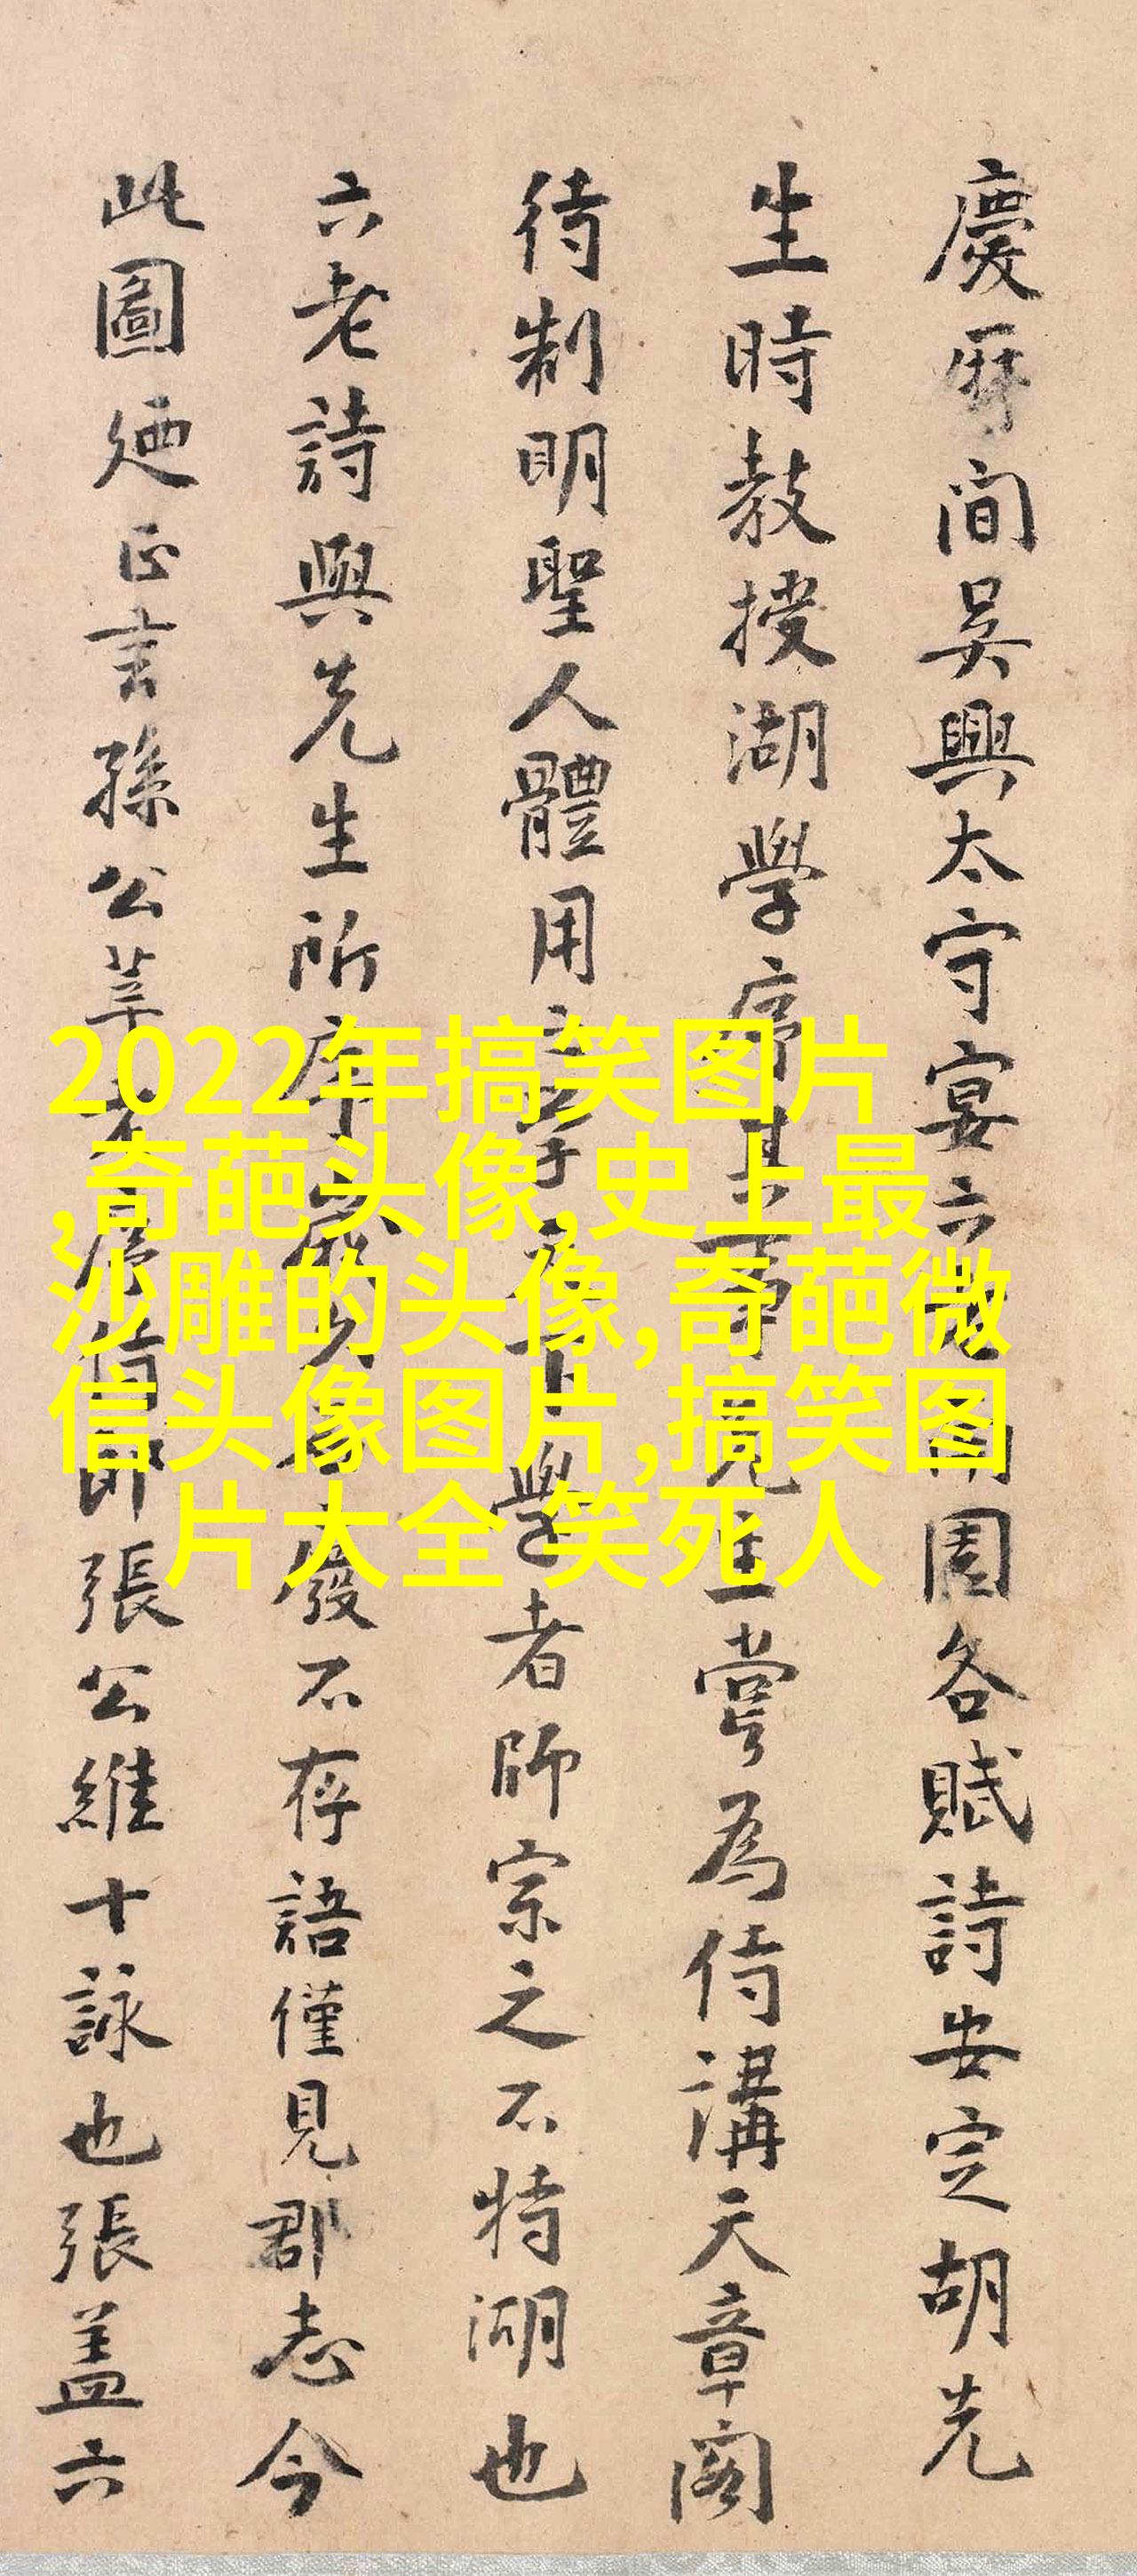 慶曆間吳興太守宴六老南園各賦詩安定胡先
生時教授湖學序其事先生嘗為侍講天章閣
待制明聖人體用之學天下學者師宗之不特湖也
六老詩與先生所序歲久發不存語僅見郡志今
此圖廼正言孫公莘老序侍郎張公維十詠也張蓋六
2022年搞笑图片
,奇葩头像,史上最
沙雕的头像,奇葩微
信头像图片,搞笑图
片大全 笑死人